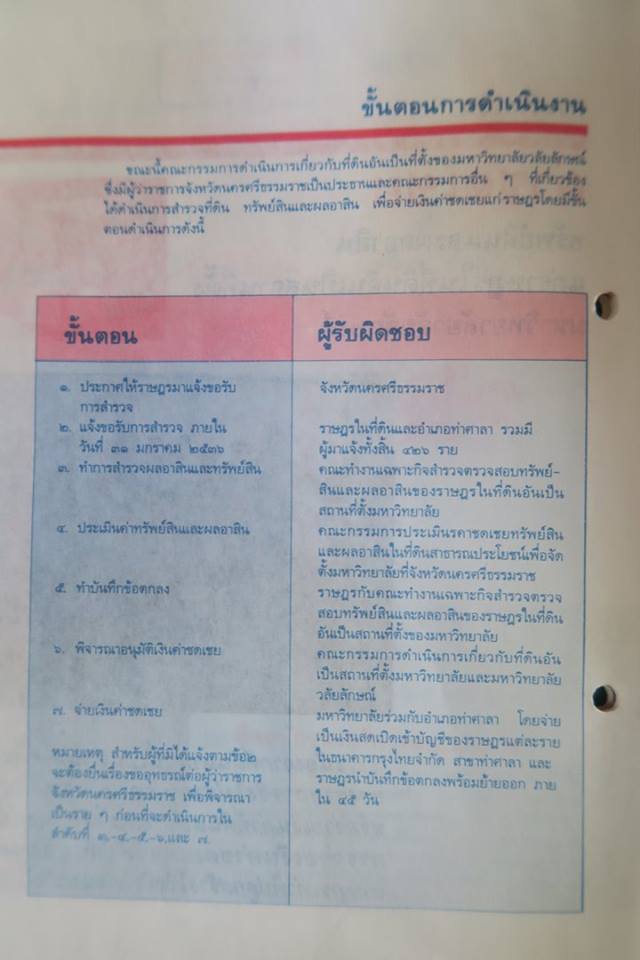 ขั้นตอนการดำเนินงาน
ขณะนี้คณะกรรมการดำเนินการเกี่ยวกับที่ดินอันเป็นที่ตั้งของมหาวิทยาลัยวลัยลักษณ์
ซึ่งมีผู้ว่าราชการจังหวัดนครศรีธรรมราชเป็นประธานและคณะกรรมการอื่น ๆ ที่เกี่ยวข้อง
ได้ดำเนินการสำรวจที่ดิน ทรัพย์สินและผลอาสิน เพื่อจ่ายเงินค่าชดเชยแก่ราษฎรโดยมีขั้น
ตอนดำเนินการดังนี้
ขั้นตอน
๑. ประกาศให้ราษฎรมาแจ้งขอรับ
การสำรวจ
๒. แจ้งขอรับการสำรวจ ภายใน
วันที่ ๓๑ มกราคม ๒๕๓๖
๓. ทำการสำรวจผลอาสินและทรัพย์สิน
๔. ประเมินค่าทรัพย์สินและผลอาสิน
๕. ทำบันทึกข้อตกลง
๖. พิจารณาอนุมัติเงินค่าชดเชย
๗. จ่ายเงินค่าชดเชย
หมายเหตุ สำหรับผู้ที่มิได้แจ้งตามข้อ๒
จะต้องยื่นเรื่องขออุทธรณ์ต่อผู้ว่าราชการ
จังหวัดนครศรีธรรมราช เพื่อพิจารณา
เป็นราย ๆ ก่อนที่จะดำเนินการใน
ลำดับที่ ๓,-๔,-๕,-๖,และ ๗
ผู้รับผิดชอบ
จังหวัดนครศรีธรรมราช
ราษฎรในที่ดินและอำเภอท่าศาลา รวมมี
ผู้มาแจ้งทั้งสิ้น ๔๒๖ ราย
คณะทำงานเฉพาะกิจสำรวจตรวจสอบทรัพย์-
สินและผลอาสินของราษฎรในที่ดินอันเป็น
สถานที่ตั้งมหาวิทยาลัย
คณะกรรมการประเมินราคาชดเชยทรัพย์สิน
และผลอาสินในที่ดินสาธารณประโยชน์เพื่อจัด
ตั้งมหาวิทยาลัยที่จังหวัดนครศรีธรรมราช
ราษฎรกับคณะทำงานเฉพาะกิจสำรวจตรวจ
สอบทรัพย์สินและผลอาสินของราษฎรในที่ดิน
อันเป็นสถานที่ตั้งของมหาวิทยาลัย
คณะกรรมการดำเนินการเกี่ยวกับที่ดินอัน
เป็นสถานที่ตั้งมหาวิทยาลัยและมหาวิทยาลัย
วลัยลักษณ์
มหาวิทยาลัยร่วมกับอำเภอท่าศาลา โดยจ่าย
เป็นเงินสดเปิดเข้าบัญชีของราษฎรแต่ละราย
ในธนาคารกรุงไทยจำกัด สาขาท่าศาลา และ
ราษฎรนำบันทึกข้อตกลงพร้อมย้ายออก ภาย
ใน ๔๕ วัน